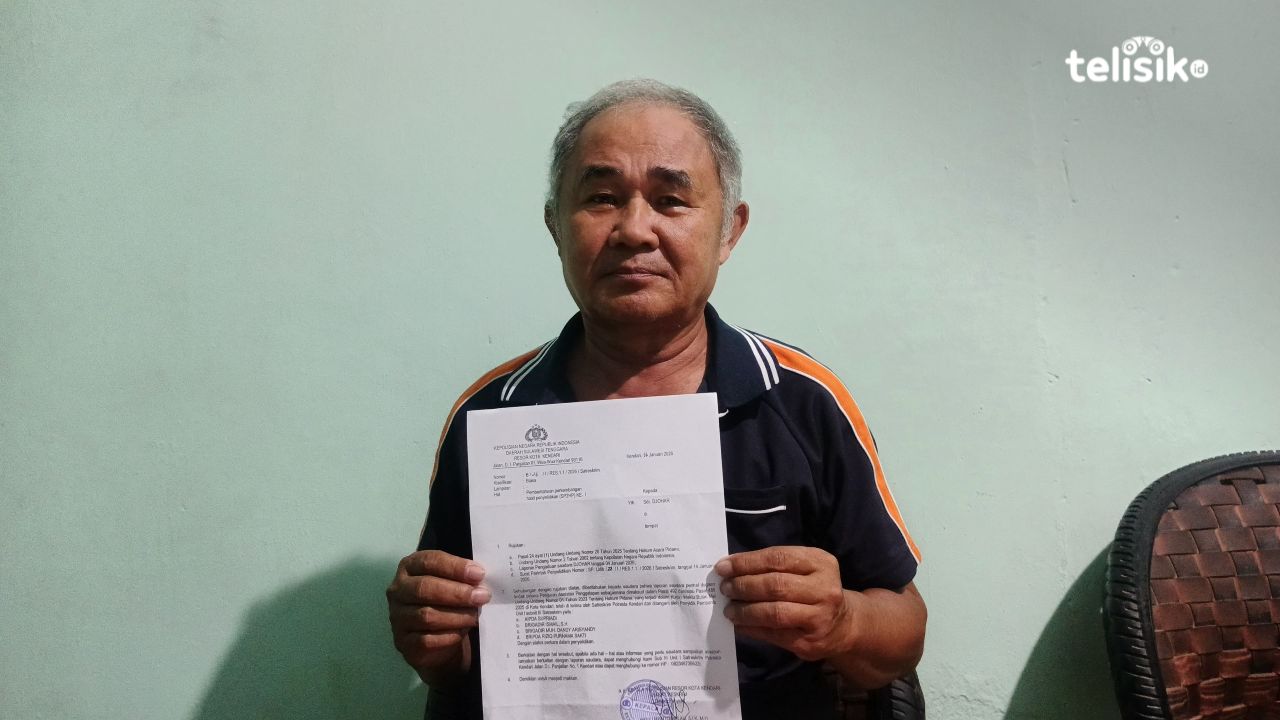 telisik id
KEPOLISIAN NEGARA REPUBLIK INDONESIA
DAERAH SULAWESI TENGGARA
RESOR KOTA KENDARI
Jalan D. I. Panjaitan
Kendari, Januari 2026
Nomor :
Klasifikasi : Biasa
Lampiran :
Hal : Pemberitahuan perkembangan
hasil penyelidikan (SP2HP) KE. I
Kepada
Yth. Sdr. DJOHAR
di
tempat
1. Rujukan :
a. Pasal 24 ayat (1) Undang-Undang Nomor 20 Tahun 2025 Tentang Hukum Acara Pidana;
b. Undang Undang Nomor 2 Tahun 2002 tentang Kepolisian Negara Republik Indonesia;
c. Laporan Pengaduan saudara DJOHAR tanggal 04 Januari 2026;
d. Surat Perintah Penyelidikan Nomor : Satreskrim, tanggal Januari
2026.
2. Sehubungan dengan rujukan diatas, diberitahukan kepada saudara bahwa laporan saudara perihal dugaan
Undang-Undang Nomor 01 Tahun 2023 Tentang Hukum Pidana, yang terjadi
di Kota Kendari, telah di terima oleh Satreskrim Polresta Kendari dan ditangani oleh Penyidik Pembantu
a. AIPDA SUPRIADI
b. BRIGADIR ISMAIL, S.H
c. BRIGADIR MUH. DANDY ARISYANDY
d. BRIPDA RIZIQ PURNAMA SAKTI
Dengan status perkara dalam penyelidikan.
3. Berkaitan dengan hal tersebut, apabila ada hal – hal atau informasi yang perlu saudara sampaikan
berkaitan dengan laporan saudara, dapat menghubungi kami
Kendari Jalan D.I. Panjaitan No. 1 Kendari atau dapat menghubungi ke nomor HP :
4. Demikian untuk menjadi maklum.
RESOR KOTA KENDARI
KEPALA